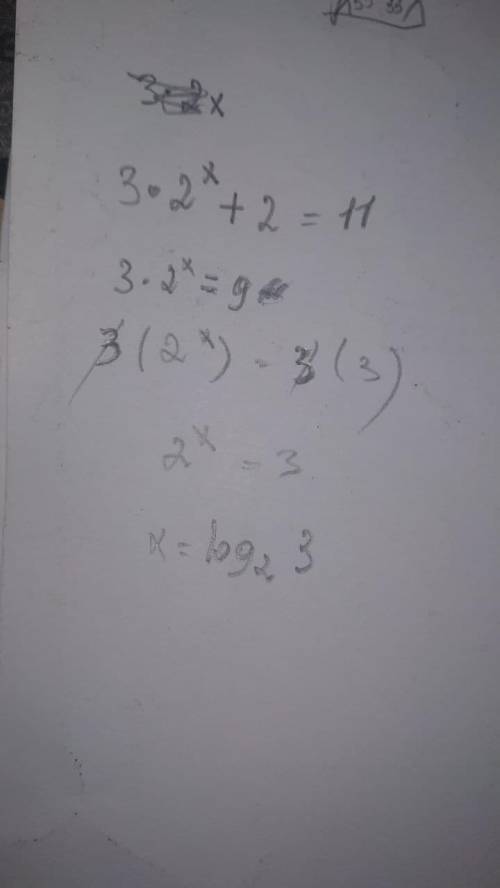 3 · 2x
3 · 2ˣ + 2 = 11
3 · 2ˣ = 9
3 ( 2ˣ ) = 3 ( 3 )
2ˣ = 3
x = log₂ 3